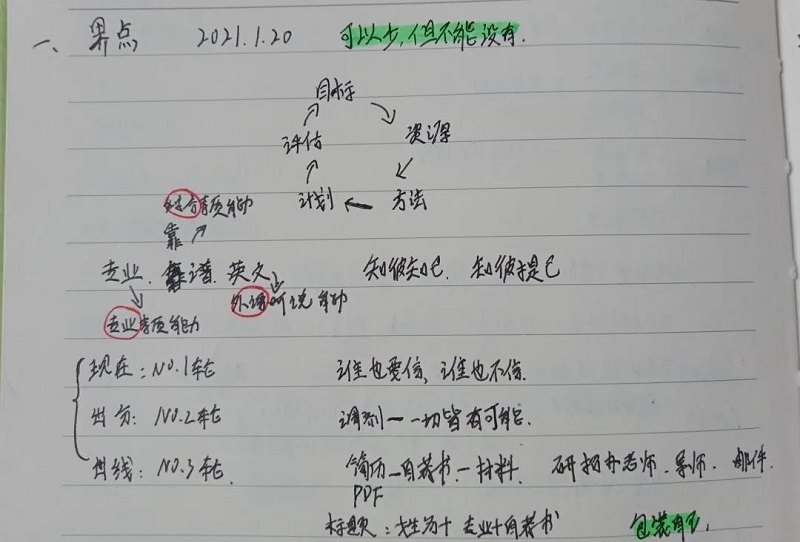 一、果点 2021.1.20 可以少,但不能没有.
目标
评估 资源
计划 方法
综合素质能力
靠
专业.靠谱.英文 知彼知己.知彼提己
外语听说能力
专业素质能力
现在:NO.1轮 谁也要信,谁也不信.
出分:NO.2轮 调剂——一切皆有可能.
出线:NO.3轮. 简历—自荐书—材料. 研招办老师.导师.邮件.
PDF
标题:姓名+专业+自荐书 包装自己.